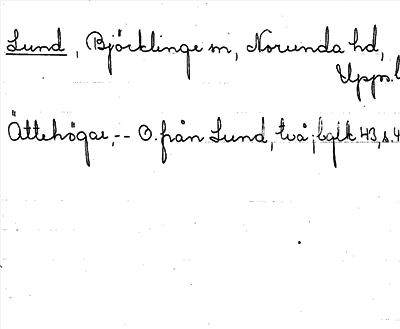 Lund, Björklinge sn, Norunda hd,
Upps. l
Ättehögar, -- O. från Lund, två; bglk 43, s. 4